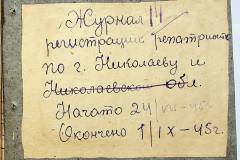 Журнал 14
регистрации репатриантов
по г. Николаеву и
Николаевской обл.
Начато 24/VII-45г.
Окончено 1/IX-45г.